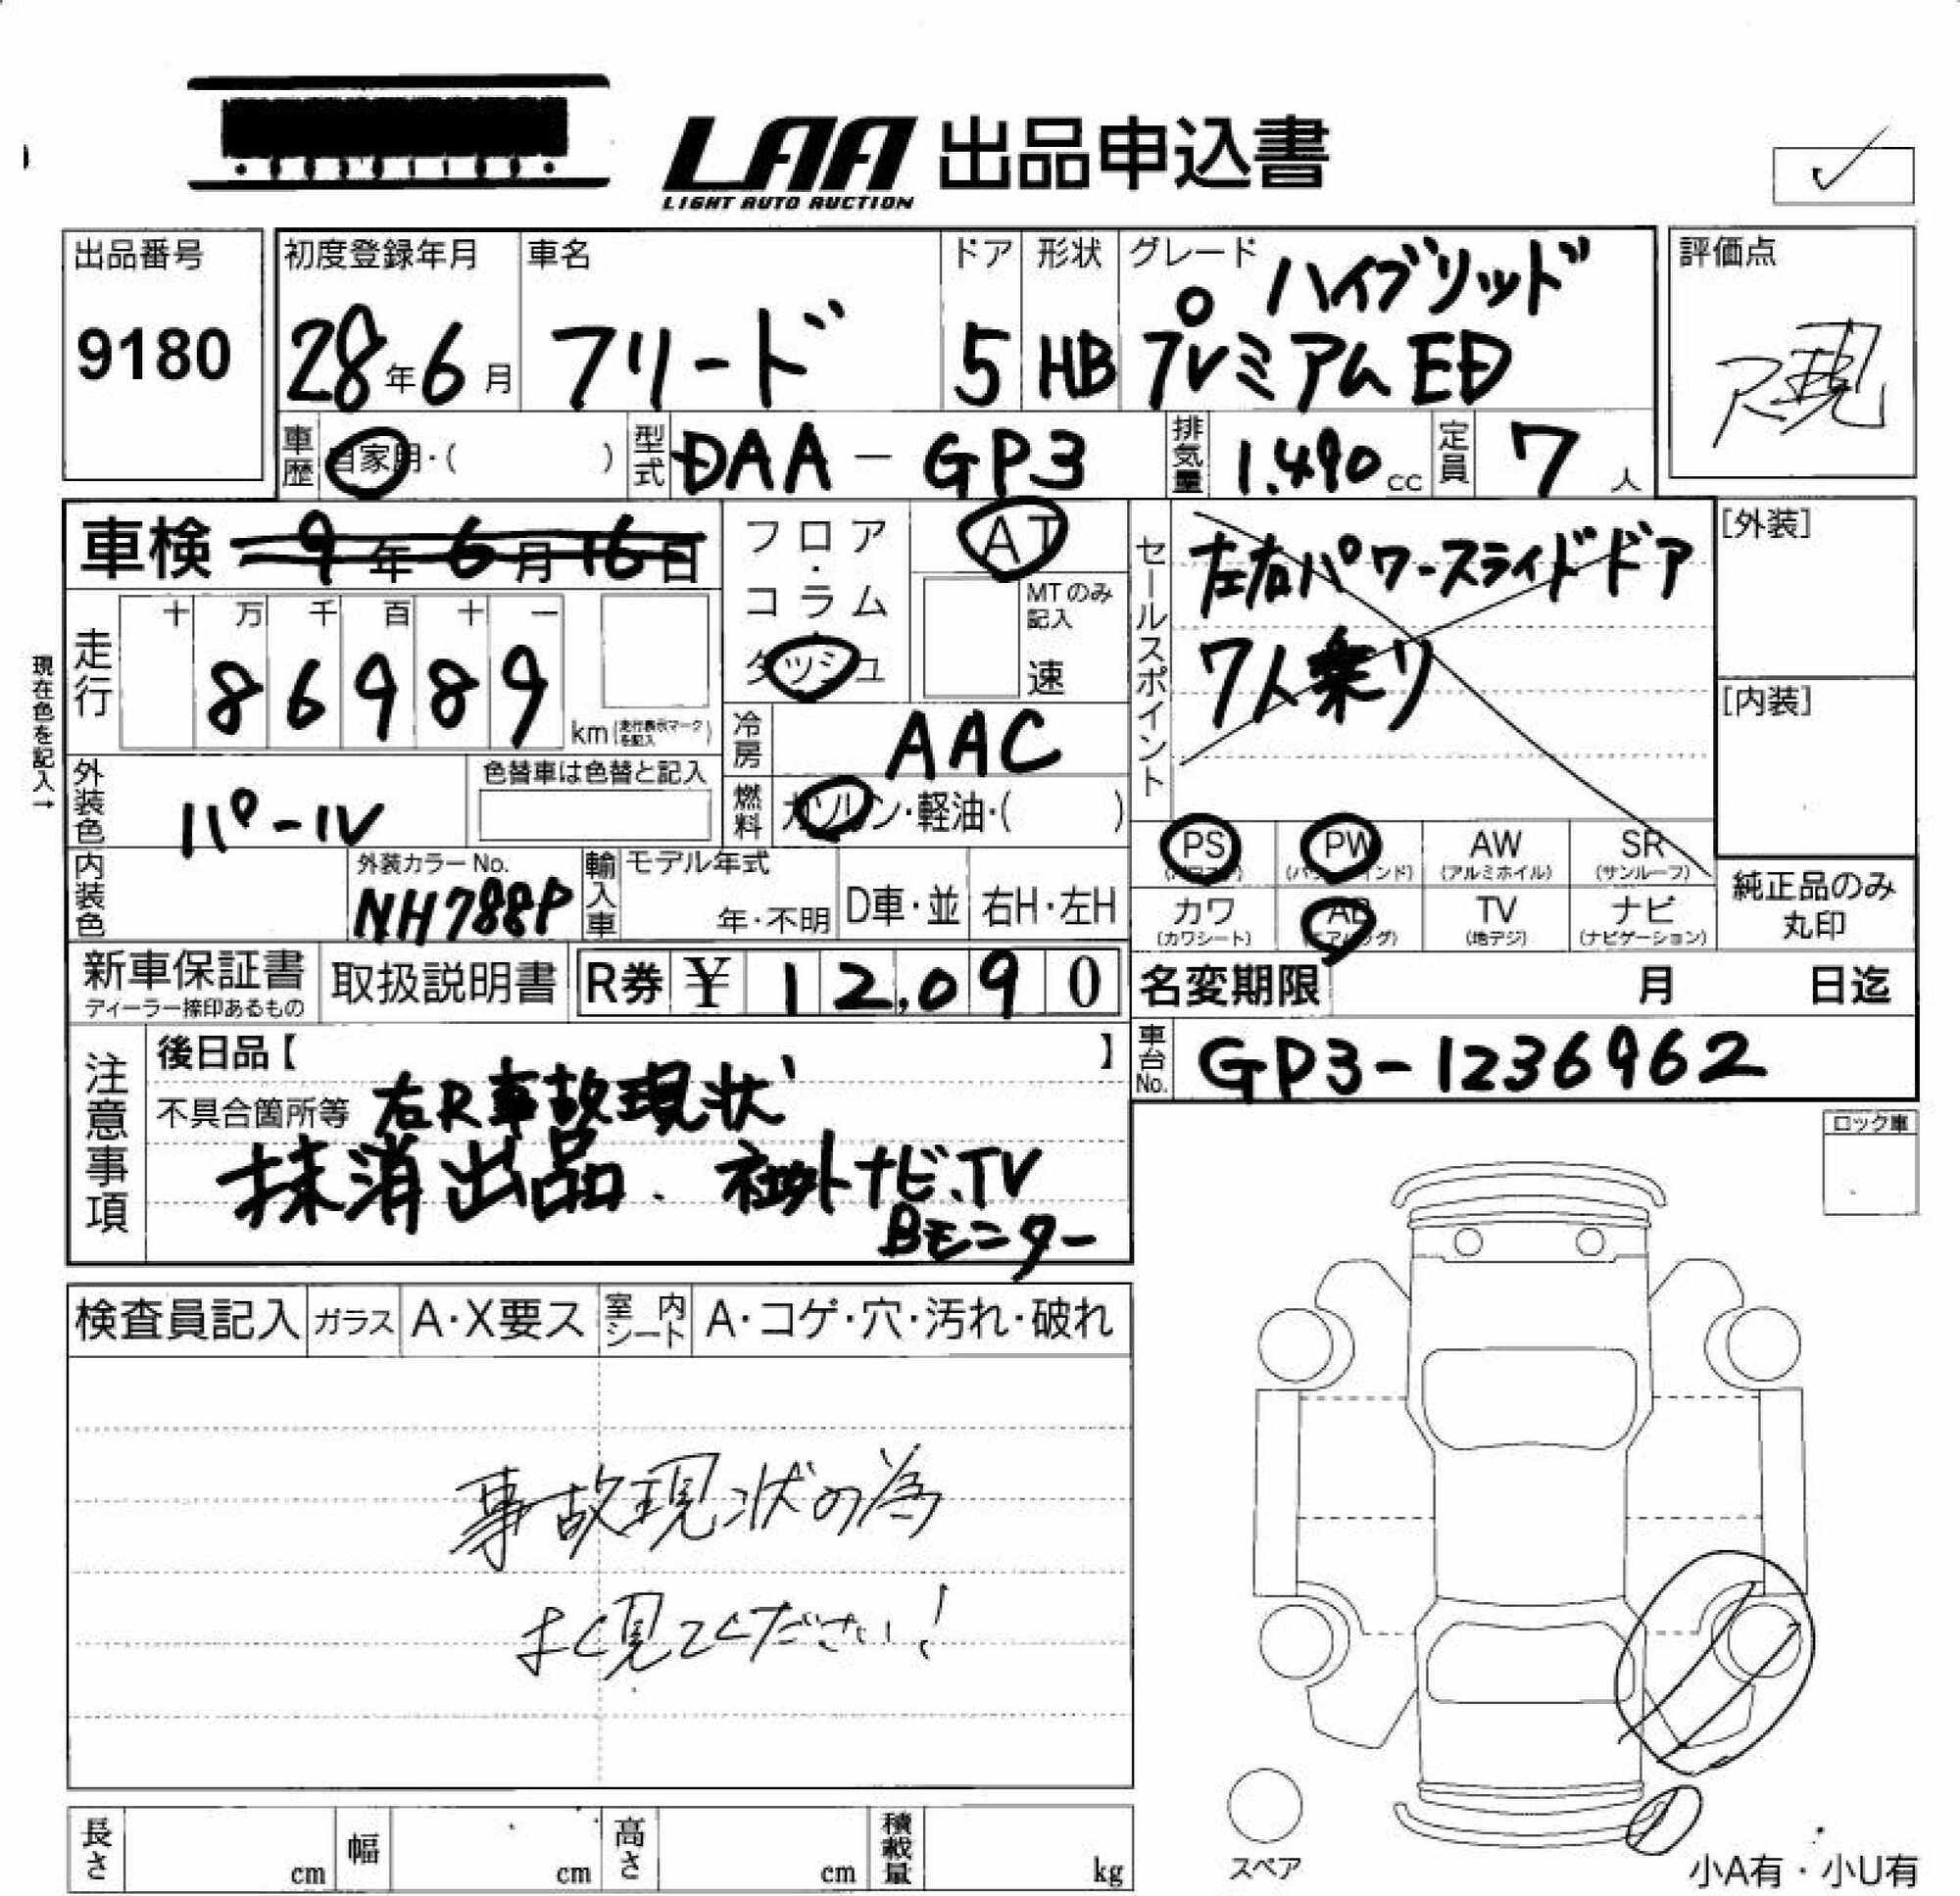 LAA 出品申込書
LIGHT AUTO AUCTION
出品番号
9180
初度登録年月
28年6月
車名
フリード
ドア
5
形状
HB
グレード
ハイブリッド
プレミアムED
評価点
現
車歴
自家用・( )
型式
DAA-GP3
排気量
1.490cc
定員
7人
車検 9年6月16日
走行
十 万 千 百 十 一
8 6 9 8 9
km(走行表示マークを記入)
現在色を記入→
フロア・コラム・ダッシュ
AT
MTのみ記入
速
冷房
AAC
燃料
ガソリン・軽油・( )
セールスポイント
左右パワースライドドア
7人乗り
[外装]
[内装]
外装色
パール
色替車は色替と記入
内装色
外装カラーNo.
NH788P
輸入車
モデル年式
年・不明
D車・並
右H・左H
PS
PW
AW
(アルミホイル)
SR
(サンルーフ)
カワ
(カワシート)
AB
(エアバッグ)
TV
(地デジ)
ナビ
(ナビゲーション)
純正品のみ
丸印
新車保証書
ディーラー捺印あるもの
取扱説明書
R券 ¥ 12,090
名変期限 月 日迄
車台No.
GP3-1236962
注意事項
後日品【 】
不具合箇所等 右R事故現状
抹消出品. 社外ナビ、TV
Bモニター
ロック車
検査員記入
ガラス
A・X要ス
室内シート
A・コゲ・穴・汚れ・破れ
事故現状の為
よく見てください!
長さ cm
幅 cm
高さ cm
積載量 kg
スペア
小A有・小U有